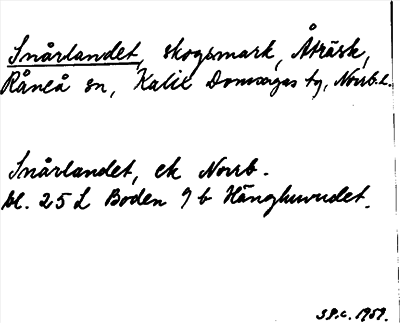 Snårlandet, skogsmark, Åträsk,
Råneå sn, Kalix Domsagas tg, Norrb.l.
Snårlandet, ek Norrb.
bl. 25 L Boden 9 b Hänghuvudet.
S.P.C. 1959.